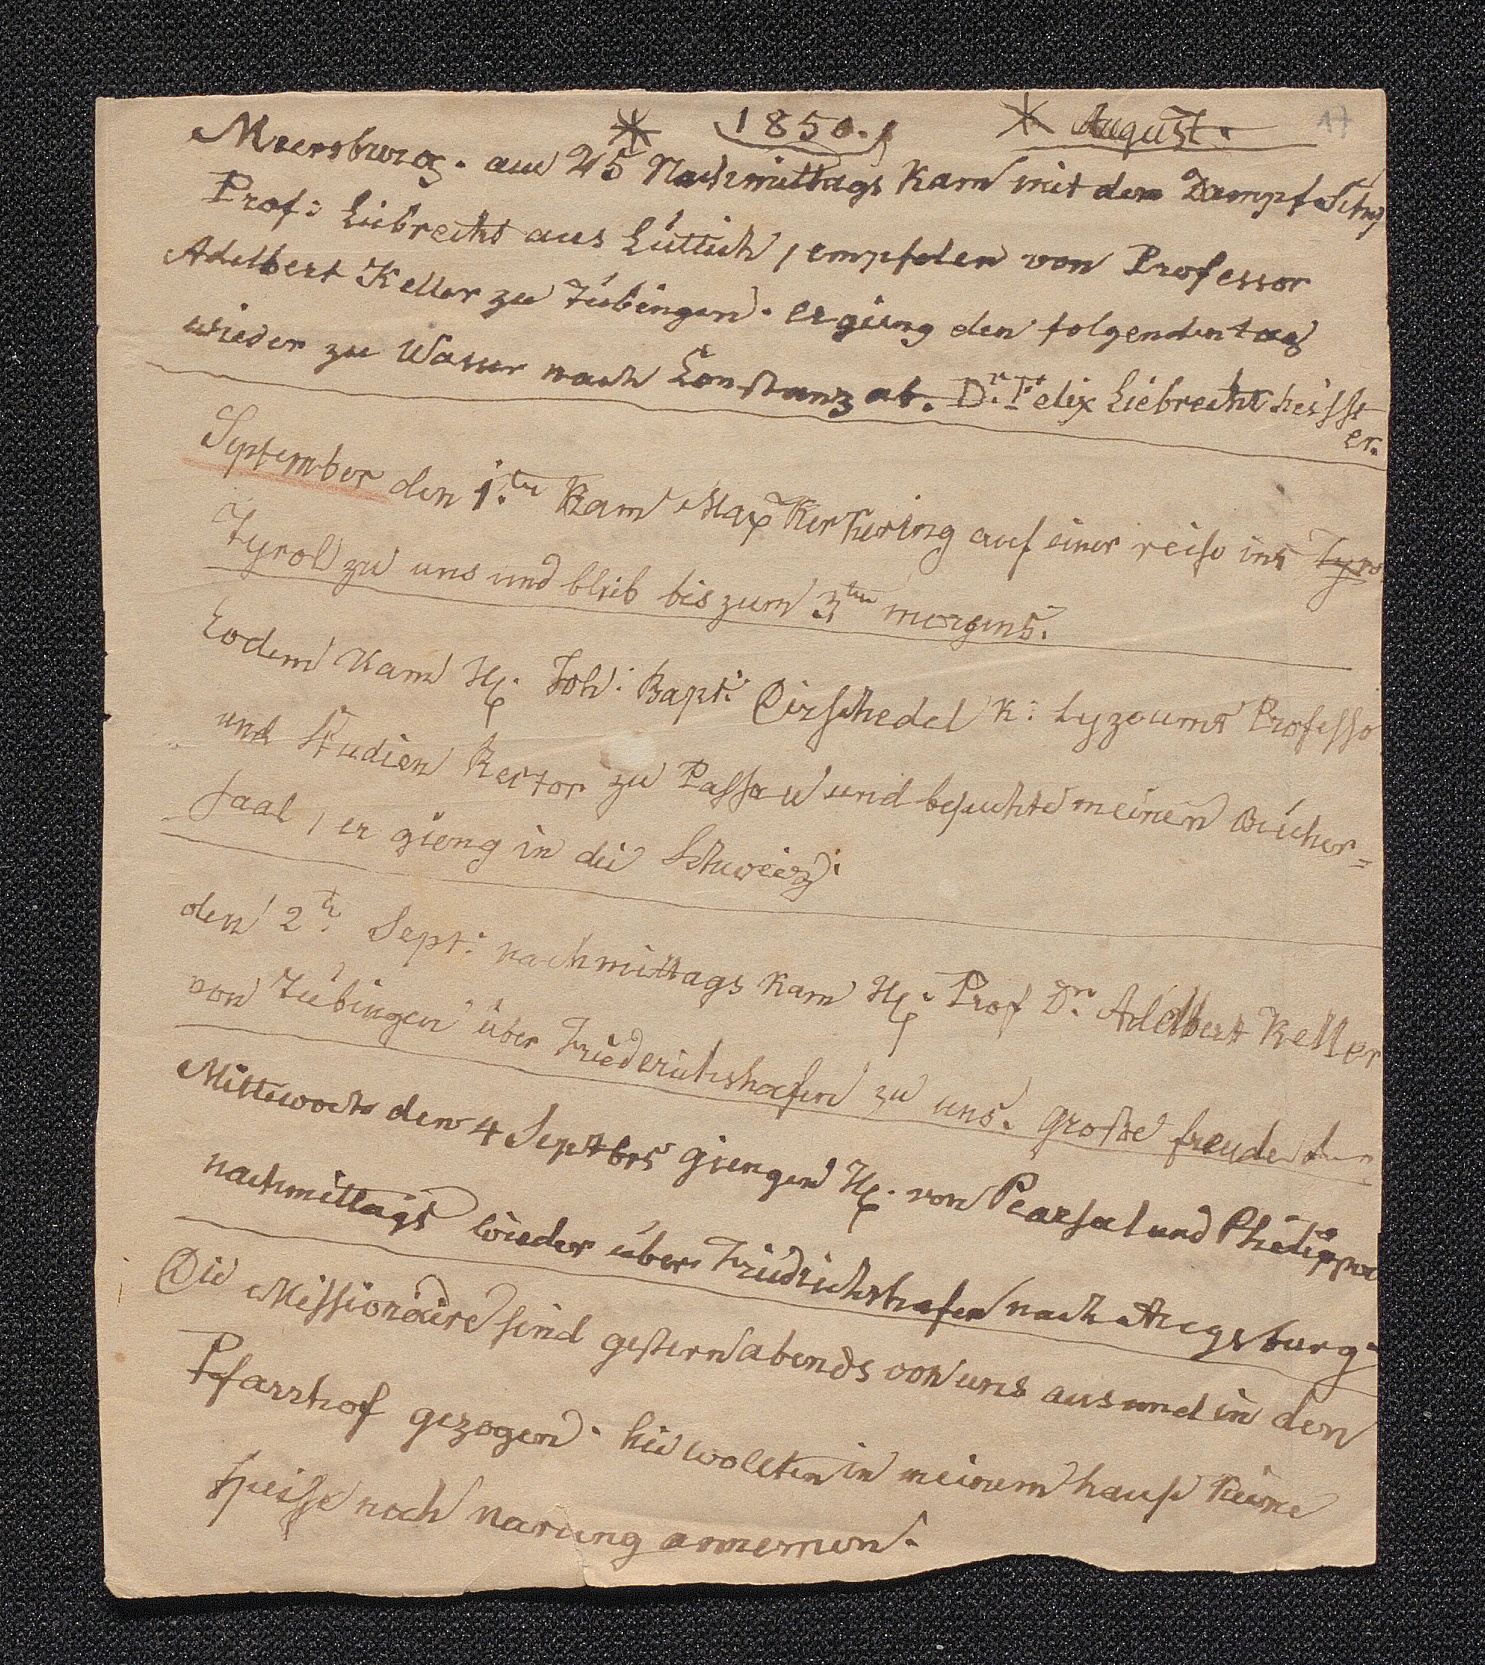 1850. August. 17
Meersburg. am 25 Nachmittags kam mit dem Dampfschif
Prof: Liebrecht aus Lüttich, empfolen von Professor
Adelbert Keller zu Tübingen. er gieng den folgenden tag
wieder zu Wasser nach Constanz ab. Dr. Felix Liebrecht heisst
er.
September den 1.ten kam Max Kerkering auf einer reise ins Tyro
Tyrol zu uns und blieb bis zum 3ten morgens.
Eodem kam H. Joh: Bapt: Dirschedel K: Lyzeums Professo
und Studien Rector zu Passau und besuchte meinen Bücher=
saal, er gieng in die Schweiz.
den 2t. Sept: nachmittags kam H. Prof Dr. Adelbert Keller
von Tübingen über Friederichshafen zu uns. große freude
Mittwoch den 4 Septbrs giengen H. von Pearsal und Philippa
nachmittags wieder über Friedrichshafen nach Augsburg.
Die Missionäire sind gestern abends von uns aus und in den
Pfarrhof gezogen. sie wollten in meinem hause keine
speise noch narung annemen.